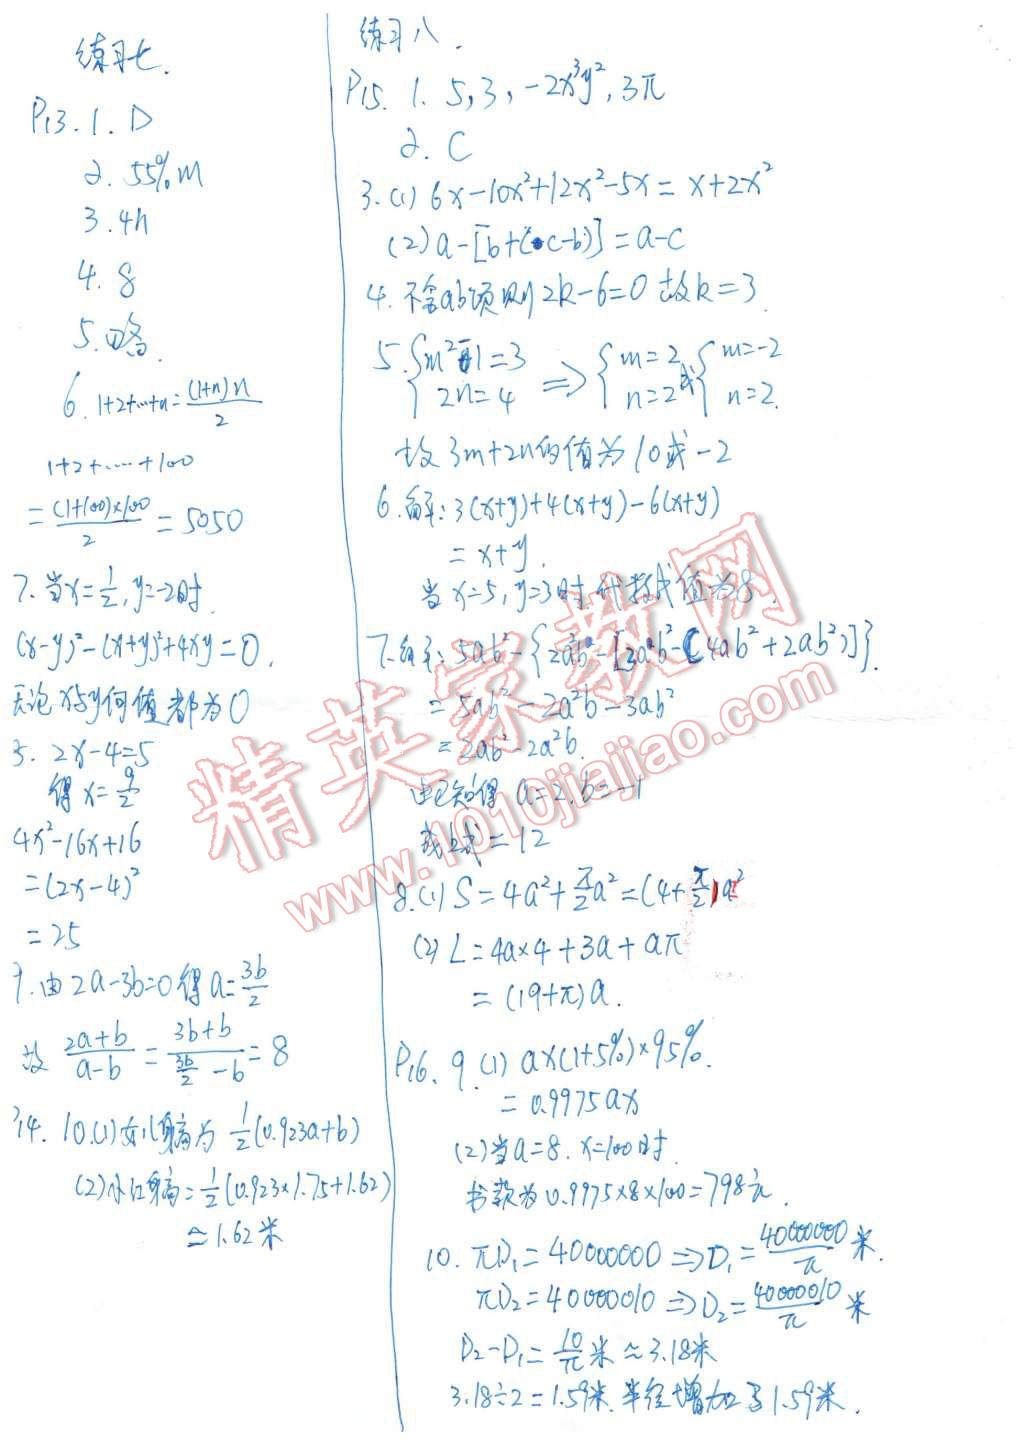 练习七.
P13. 1. D
2. 55%m
3. 4n
4. 8
5. 略.
6. 1+2+…+n=(1+n)n/2
1+2+……+100
=(1+100)×100/2=5050
7. 当x=1/2, y=-2时.
(x-y)²-(x+y)²+4xy=0,
无论x与y何值都为0
8. 2x-4=5
得x=9/2
4x²-16x+16
=(2x-4)²
=25
9. 由2a-3b=0得a=3b/2
故 (2a+b)/(a-b)=(3b+b)/(3b/2-b)=8
P14. 10.(1)女儿身高为 1/2(0.923a+b)
(2)小红身高=1/2(0.923×1.75+1.62)
≈1.62米
练习八.
P15. 1. 5, 3, -2x³y², 3π
2. C
3.(1) 6x-10x²+12x²-5x=x+2x²
(2) a-[b+(c-b)]=a-c
4. 不含ab项则2k-6=0 故k=3.
5. {m²-1=3 2n=4 ⇒ {m=2 n=2 或 {m=-2 n=2.
故3m+2n的值为10或-2
6. 解: 3(x+y)+4(x+y)-6(x+y)
=x+y.
当x=5, y=3时 代数式值为8.
7. 解: 5ab²-{2a²b-[3a²b-(4ab²+2ab²)]}.
=5ab²-2a²b-3ab²
=2ab²-2a²b.
由已知得a=2, b=-1
=12
8.(1) S=4a²+π/2a²=(4+π/2)a²
(2) L=4a×4+3a+aπ
=(19+π)a.
P16. 9.(1) ax(1+5%)×95%.
=0.9975ax
(2)当a=8. x=100时.
书款为0.9975×8×100=798元.
10. πD₁=40000000⇒D₁=40000000/π米.
πD₂=40000010⇒D₂=40000010/π米
D₂-D₁=10/π米≈3.18米
3.18÷2=1.59米. 半径增加了1.59米.
精英家教网
www.1010jiajiao.com